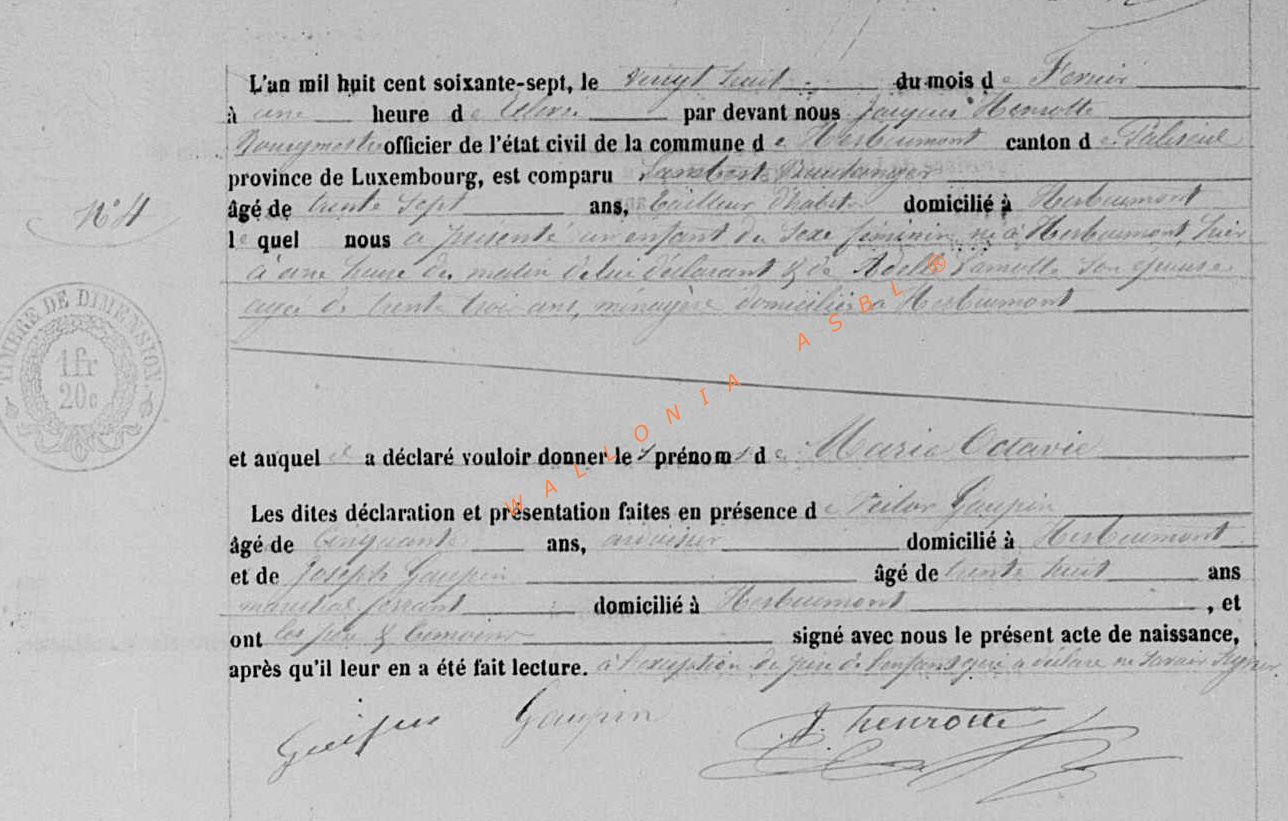 L'an mil huit cent soixante-sept, le vingt huit du mois de Fevrier
à une heure de par devant nous Jacques Henrotte
Bourgmestre officier de l'état civil de la commune de Herbeumont canton de Paliseul
province de Luxembourg, est comparu Lambert
N° 4
âgé de trente sept ans, tailleur d'habits domicilié à Herbeumont
lequel nous a présenté un enfant du sexe féminin né à Herbeumont, hier
à une heure du matin de lui déclarant & de Adelle Lamotte son épouse
agée de trente trois ans, ménagère domiciliée à Herbeumont
TIMBRE DE DIMENSION
1 fr
20 c
et auquel il a déclaré vouloir donner les prénoms de Marie Octavie
Les dites déclaration et présentation faites en présence de Gaupin
âgé de cinquante ans, domicilié à Herbeumont
et de Joseph Gaupin âgé de trente huit ans
maréchal ferrant domicilié à Herbeumont, et
ont les père & temoins signé avec nous le présent acte de naissance,
après qu'il leur en a été fait lecture. à l'exception du père de l'enfant qui a déclaré ne savoir signer
Gaupin J. henrotte
WALLONIA ASBL ®